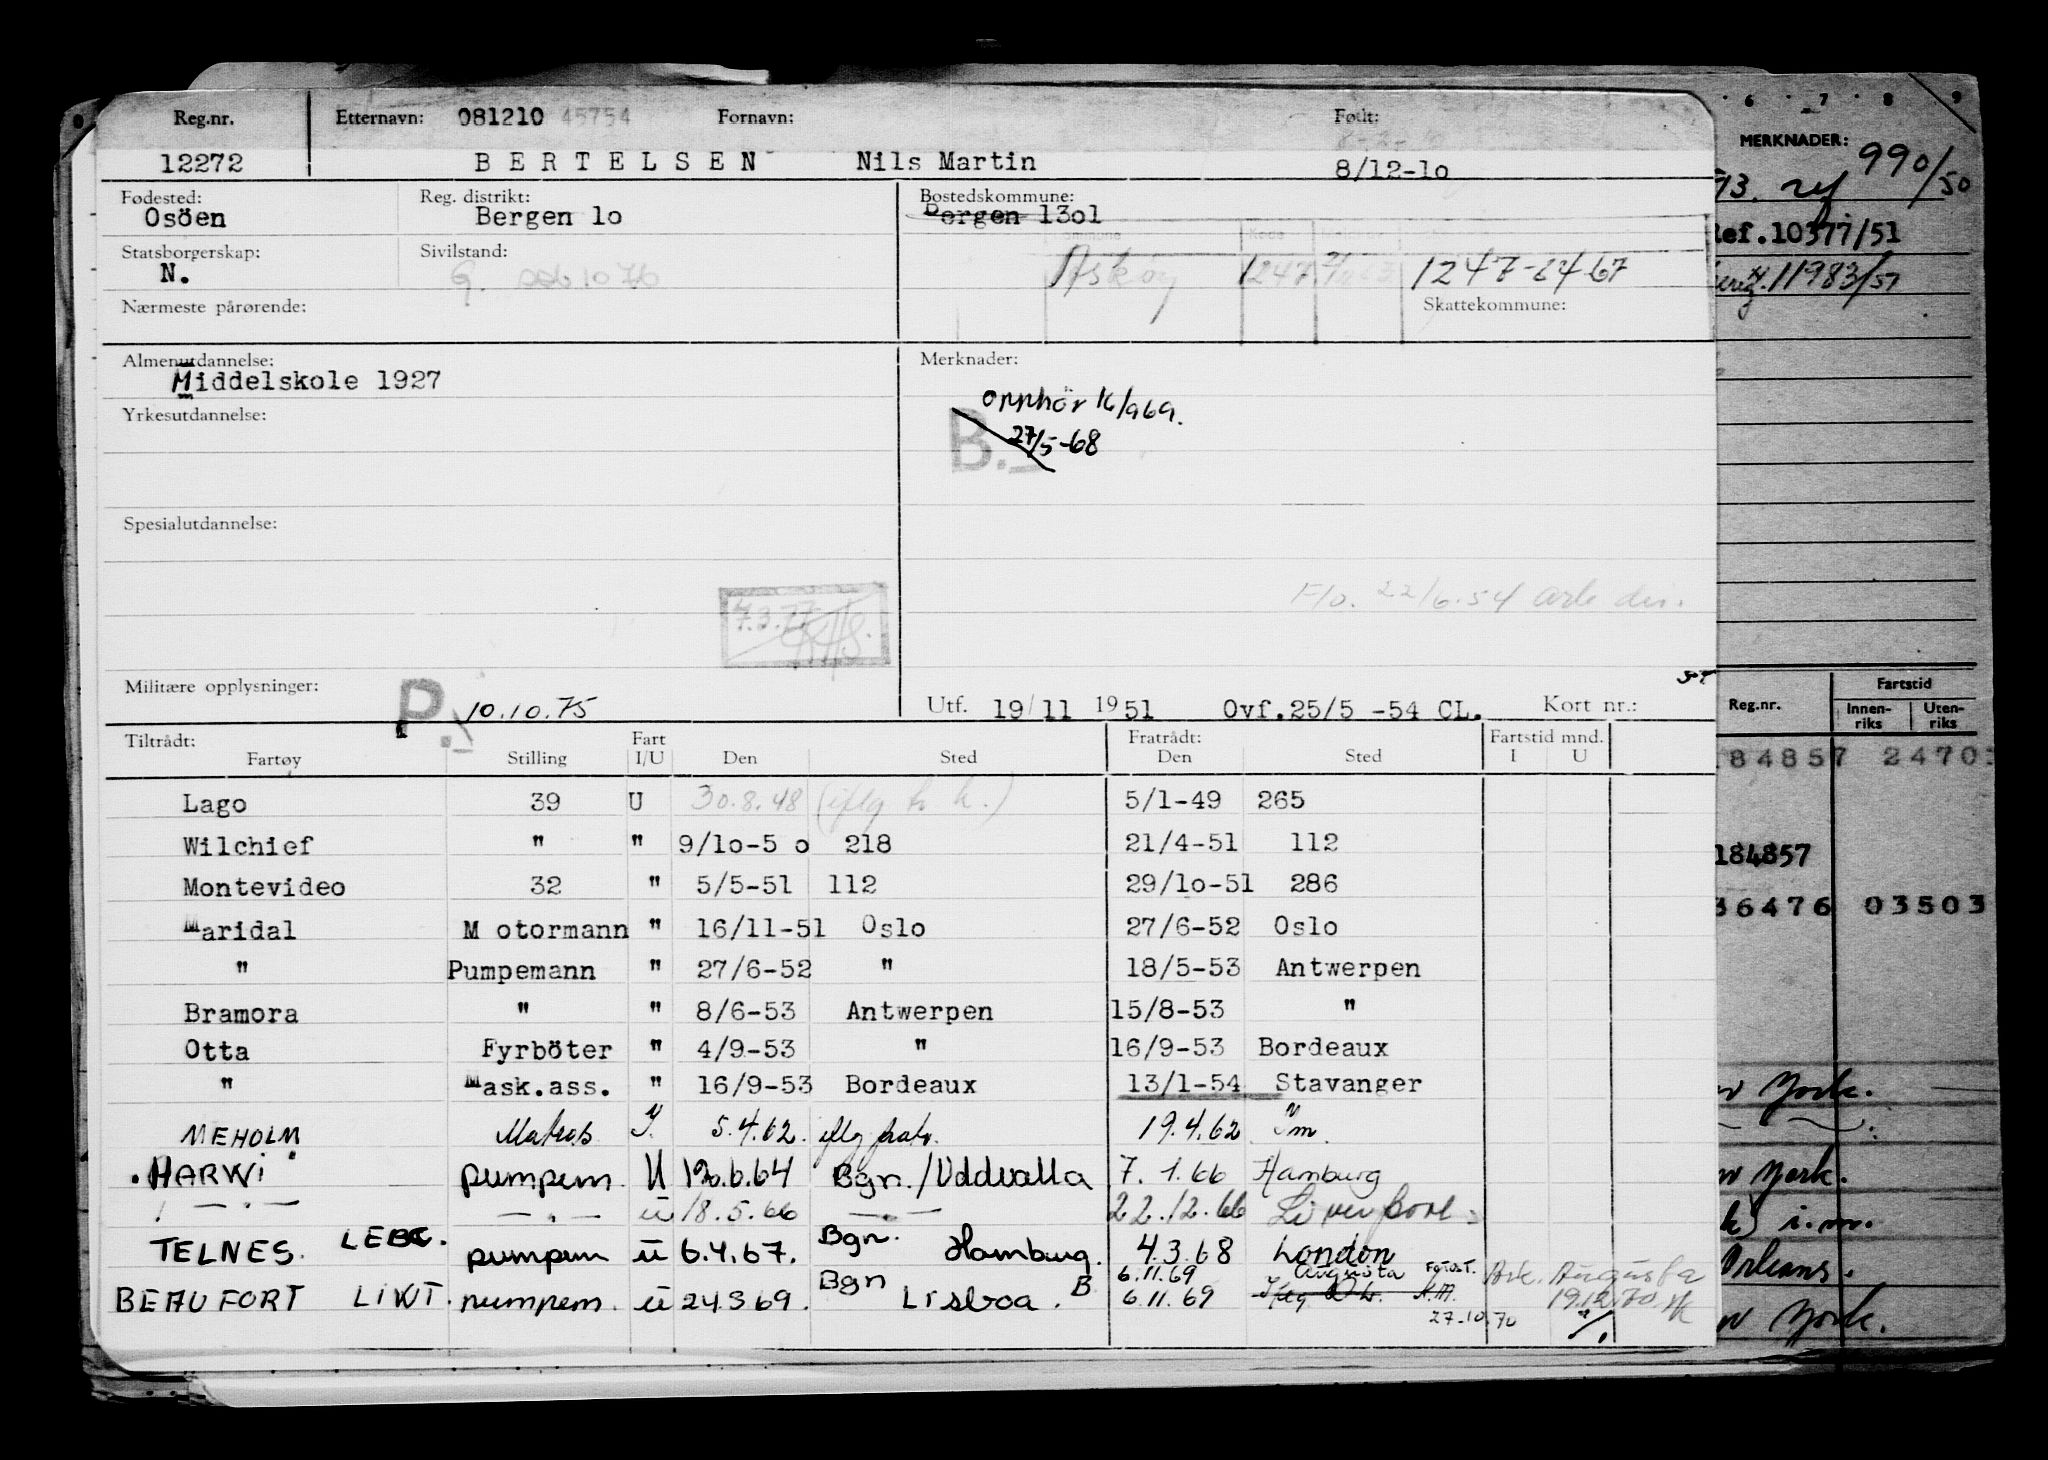 Reg.nr. Etternavn: 081210 45754 Fornavn: Født:
12272 BERTELSEN Nils Martin 8/12-1o
Fødested: Reg. distrikt: Bostedskommune:
Osöen Bergen 1o Bergen 13o1
Statsborgerskap: Sivilstand:
N. G. Askøy 1247 1247-64-67
Nærmeste pårørende: Skattekommune:
Almenutdannelse: Merknader:
Middelskole 1927
Yrkesutdannelse: opphör 16/969.
B. 27/5-68
Spesialutdannelse:
F/o. 22/6.54
7.3.77
Militære opplysninger: P. 10.10.75 Utf. 19/11 1951 Ovf.25/5 -54 CL. Kort nr.:
Tiltrådt: Fart Fratrådt: Fartstid mnd.
Fartøy Stilling I/U Den Sted Den Sted I U
Lago 39 U 30.8.48 (iflg 5/1-49 265
Wilchief " " 9/1o-5 o 218 21/4-51 112
Montevideo 32 " 5/5-51 112 29/1o-51 286
Maridal M otormann " 16/11-51 Oslo 27/6-52 Oslo
" Pumpemann " 27/6-52 " 18/5-53 Antwerpen
Bramora " " 8/6-53 Antwerpen 15/8-53 "
Otta Fyrböter " 4/9-53 " 16/9-53 Bordeaux
" Mask.ass. " 16/9-53 Bordeaux 13/1-54 Stavanger
MEHOLM Matros 5.4.62. iflg fratr. 19.4.62
HARWI pumpem. U .6.64 Bgn./Uddvalla 7.1.66 Hamburg
— " — — " — ü 18.5.66 — " — 22.12.66 Liverpool
TELNES. LEBC. pumpem ü 6.4.67. Bgn. Hamburg. 4.3.68 London
6.11.69 Augusta
BEAUFORT LIWT. pumpem. ü 24.3.69. Bgn Lisboa. B 6.11.69 Augusta
27.10.70 19.12.70
6 7 8 9
MERKNADER:
990/50
ref
Ref.10377/51
11983/51
Reg.nr. Fartstid
Innen-riks Uten-riks
184857 2470
184857
36476 03503
York.
York.
i.m.
Orleans.
York.